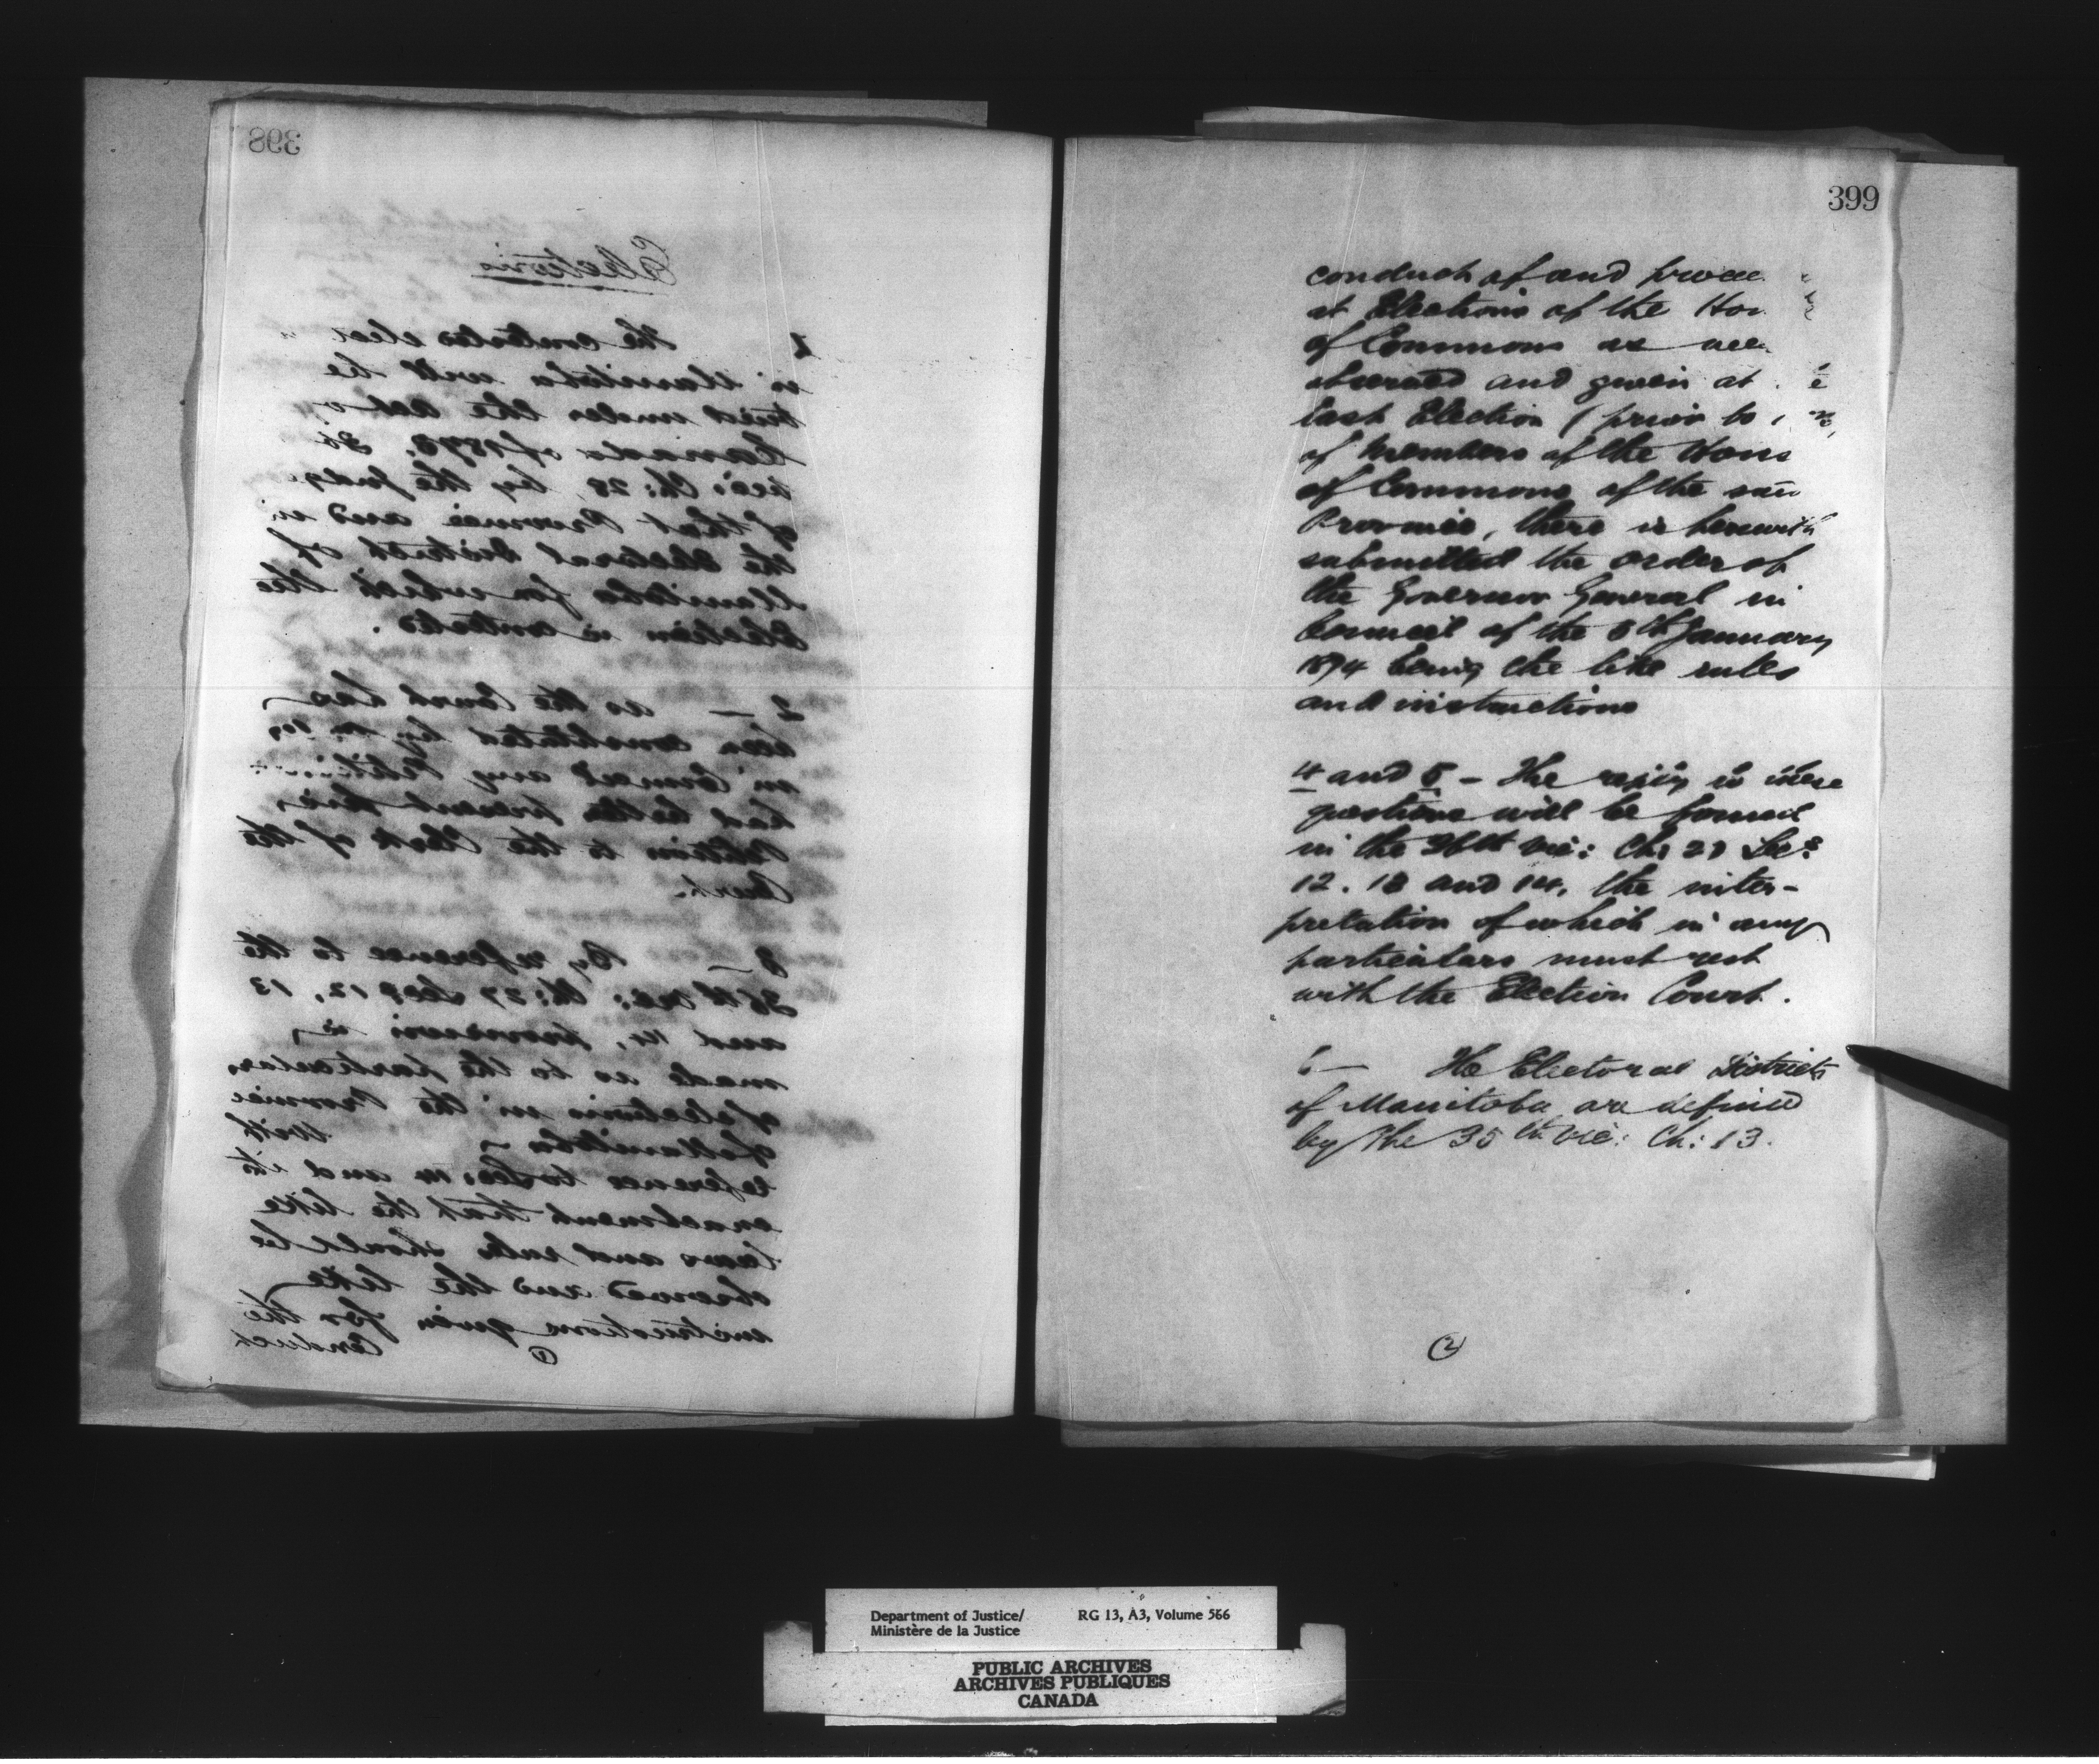 398
Elections
1 The contested elect
in Manitoba will be
tried under the Act of
Canada of 1873, 36
Vic: Ch: 28, by the Judges
of that Province and in
the Electoral District of
Manitoba for which the
Election is contested.
2 — as the Court has
been constituted by
in Council any Petition
had better present
Petition to the Clerk of the
Court.
3 — By reference to the
36th Vic: Ch: 27 Secs 12, 13
and 14, provision is
made as to the particulars
of elections in the Province
of Manitoba with
reference to Sec: 14 and its
enactment that the like
laws and rules should be
observed and the like
instructions given for the
Conduct
1
399
conduct of and
at Elections of the
of Commons as
observed and given at
last Election (prior to
of Members of the
of Commons of the
Province, there is herewith
submitted the order of
the Governor General in
Council of the 5th January
1874 being the like rules
and instructions
4 and 5 – The reply to these
questions will be found
in the 36th Vic: Ch: 27 Secs
12. 13 and 14, the inter-
pretation of which in any
particulars must rest
with the Election Court.
6 — The Electoral Districts
of Manitoba are defined
by the 35th Vic: Ch: 13.
2
Department of Justice/ RG 13, A3, Volume 566
Ministère de la Justice
PUBLIC ARCHIVES
ARCHIVES PUBLIQUES
CANADA